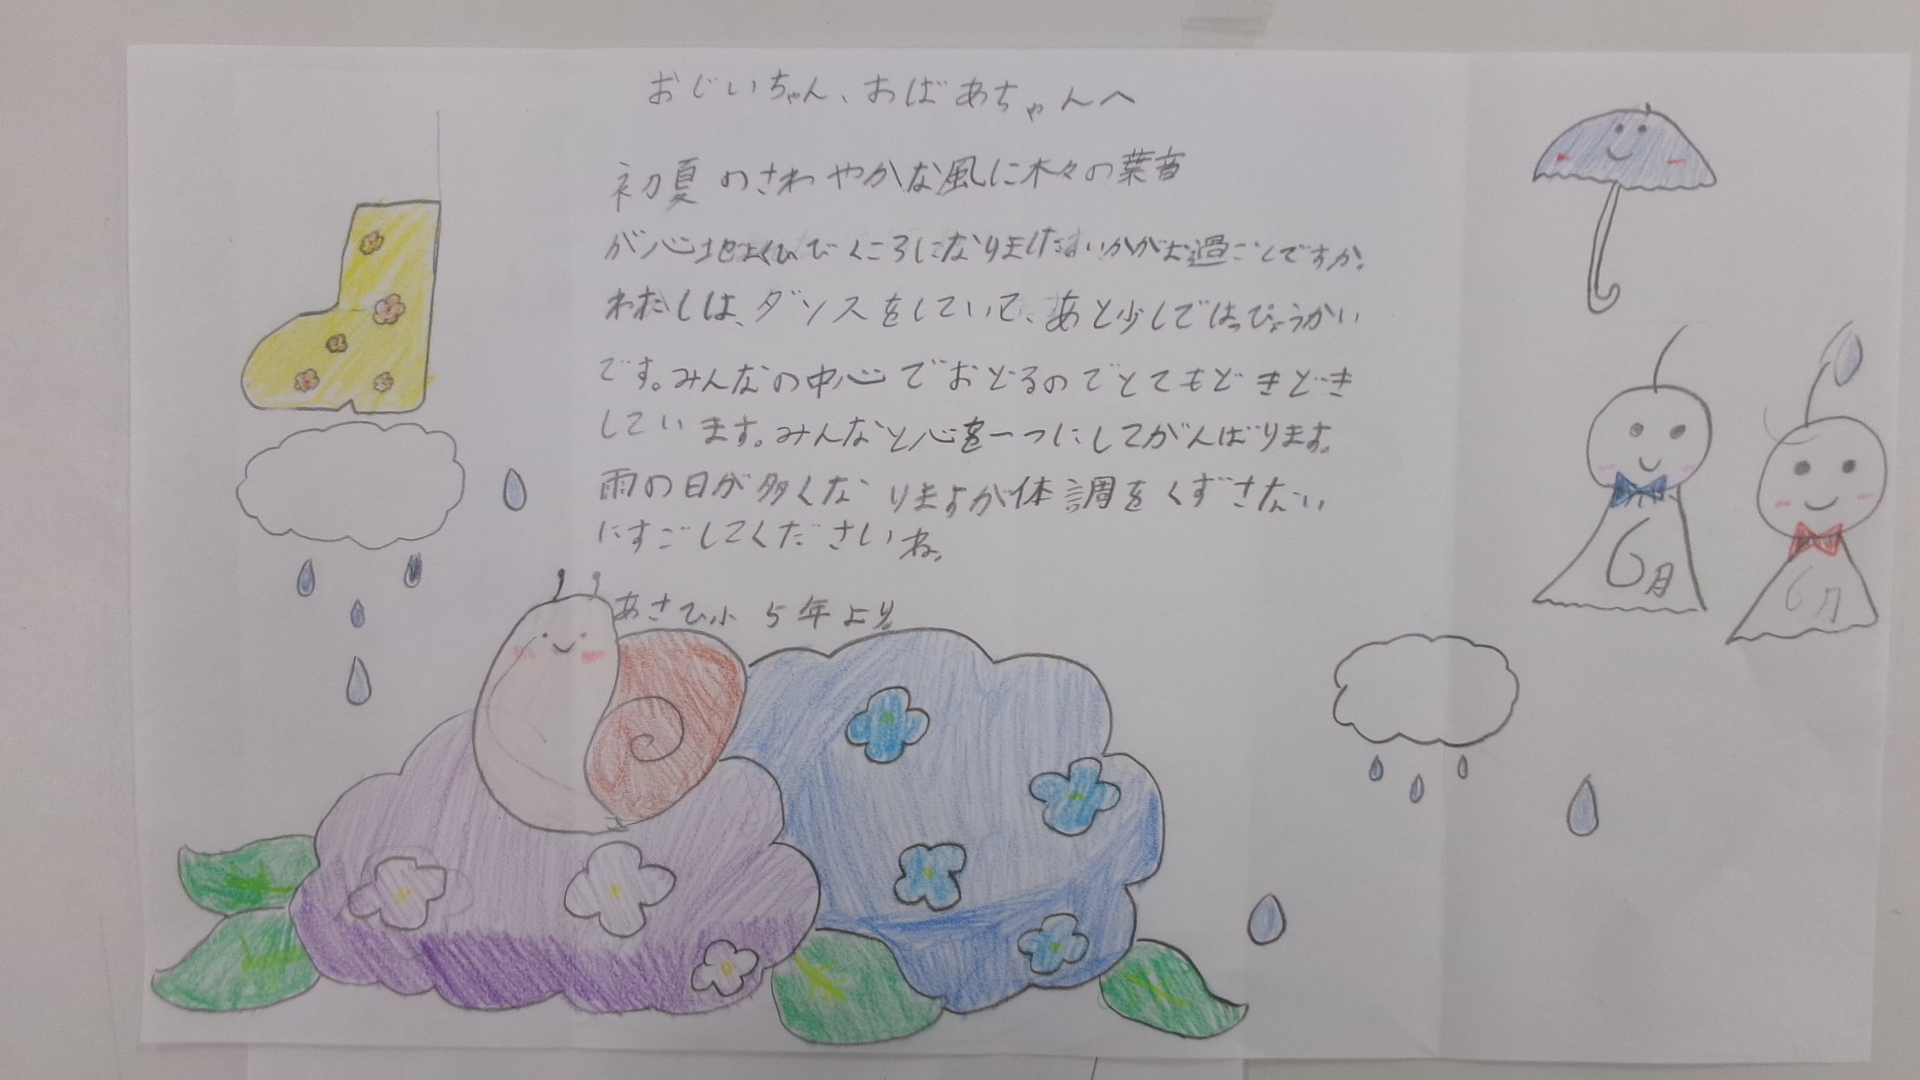 おじいちゃん、おばあちゃんへ
初夏のさわやかな風に木々の葉音
が心地よくひびくころになりましたがいかがお過ごしですか。
わたしは、ダンスをしていて、あと少しではっぴょうかい
です。みんなの中心でおどるのでとてもどきどき
しています。みんなと心を一つにしてがんばります。
雨の日が多くなりますが体調をくずさない
にすごしてくださいね。
あさひ小 5年より。
6月
6月